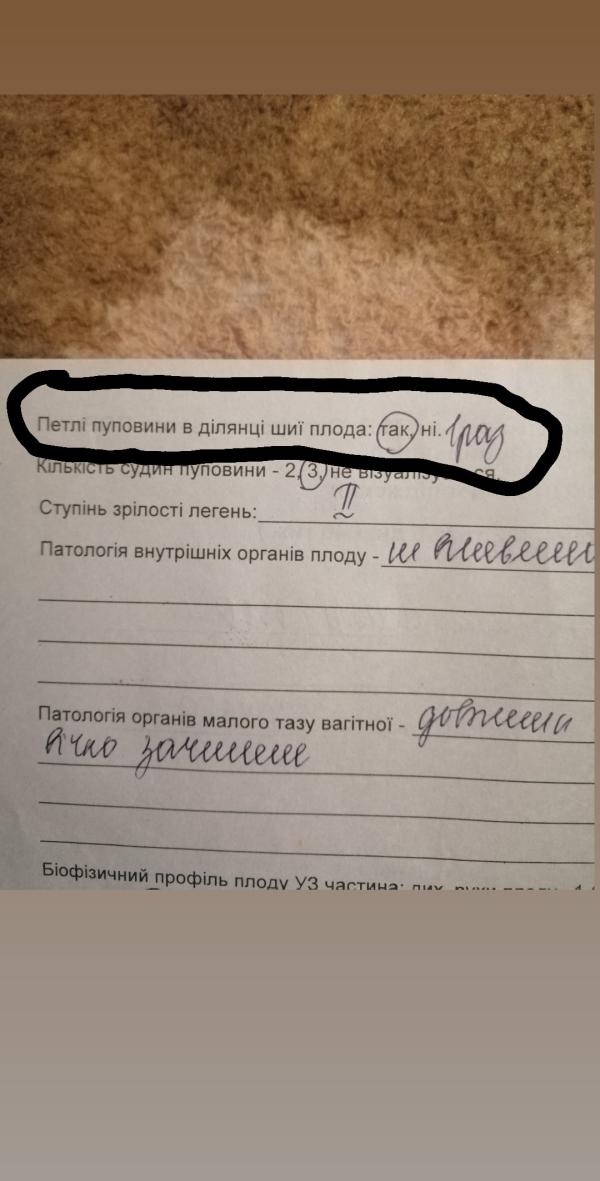 Петлі пуповини в ділянці шиї плода: так, ні. 1 раз
Кількість судин пуповини - 2, 3, не візуалізується.
Ступінь зрілості легень: II
Патологія внутрішніх органів плоду - не виявлено
Патологія органів малого тазу вагітної - довжина
вічко зачинене
Біофізичний профіль плоду УЗ частина: дих. рухи плоду